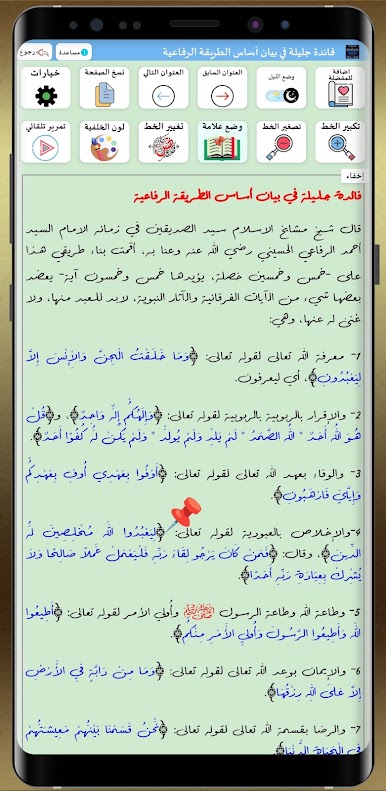 فائدة جليلة في بيان أساس الطريقة الرفاعية
مساعدة
رجوع
اضافة للمفضلة
وضع الليل
العنوان السابق
العنوان التالي
نسخ الصفحة
خيارات
تكبير الخط
تصغير الخط
وضع علامة
تغيير الخط
لون الخلفية
تمرير تلقائي
إخفاء
فائدة جليلة في بيان أساس الطريقة الرفاعية
قال شيخ مشايخ الاسلام سيد الصديقين في زمانه الامام السيد
أحمد الرفاعي الحسيني رضي الله عنه وعنا به، أقمت بناء طريقي هذا
على -خمس وخمسين خصلة، يؤيدها خمس وخمسون آية- بعضد
بعضها شيء من الآيات الفرقانية والآثار النبوية، لابد للعبد منها، ولا
غنى له عنها، وهي:
1- معرفة الله تعالى لقوله تعالى: ﴿وَمَا خَلَقْتُ الْجِنَّ وَالْإِنْسَ إِلَّا
لِيَعْبُدُونِ﴾، أي ليعرفون.
2- والاقرار بالربوبية بالربوبية لقوله تعالى: ﴿وَإِلَٰهُكُمْ إِلَٰهٌ وَاحِدٌ﴾، و﴿قُلْ
هُوَ اللَّهُ أَحَدٌ * اللَّهُ الصَّمَدُ * لَمْ يَلِدْ وَلَمْ يُولَدْ * وَلَمْ يَكُن لَّهُ كُفُوًا أَحَدٌ﴾.
3- والوفاء بعهد الله تعالى لقوله تعالى: ﴿أَوْفُوا بِعَهْدِي أُوفِ بِعَهْدِكُمْ
وَإِيَّايَ فَارْهَبُونِ﴾.
4-والإخلاص بالعبودية لقوله تعالى: ﴿لِيَعْبُدُوا اللَّهَ مُخْلِصِينَ لَهُ
الدِّينَ﴾، وقال: ﴿فَمَن كَانَ يَرْجُو لِقَاءَ رَبِّهِ فَلْيَعْمَلْ عَمَلًا صَالِحًا وَلَا
يُشْرِكْ بِعِبَادَةِ رَبِّهِ أَحَدًا﴾.
5- وطاعة الله وطاعة الرسول ﷺ وأولي الأمر لقوله تعالى: ﴿أَطِيعُوا
اللَّهَ وَأَطِيعُوا الرَّسُولَ وَأُولِي الْأَمْرِ مِنْكُمْ﴾.
6- والإيمان بوعد الله تعالى لقوله تعالى: ﴿وَمَا مِن دَابَّةٍ فِي الْأَرْضِ
إِلَّا عَلَى اللَّهِ رِزْقُهَا﴾.
7- والرضا بقسمة الله تعالى لقوله تعالى: ﴿نَحْنُ قَسَمْنَا بَيْنَهُم مَّعِيشَتَهُمْ
فِي الْحَيَاةِ الدُّنْيَا﴾